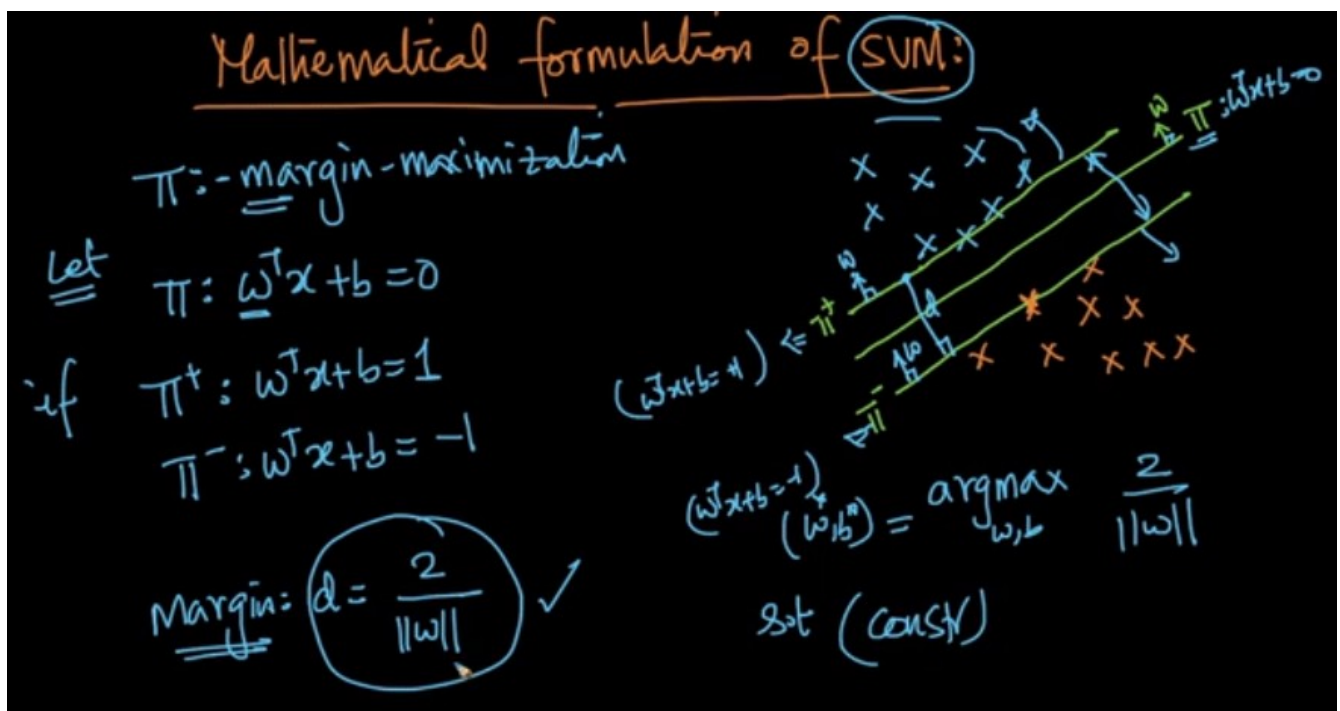 Mathematical formulation of SVM:
π:- margin-maximization
Let π: wᵀx+b=0
if π⁺: wᵀx+b=1
π⁻: wᵀx+b=-1
Margin: d= 2/||w|| ✓
w π: wᵀx+b=0
w
π⁺
d
w
π⁻
(wᵀx+b=+1)
(wᵀx+b=-1)
(w*,b*) = argmax w,b 2/||w||
s.t (constr)